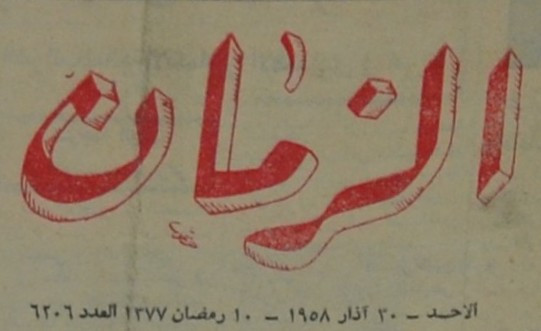 الزمان
الاحد – ٣٠ آذار ١٩٥٨ – ١٠ رمضان ١٣٧٧ العدد ٦٢٠٦